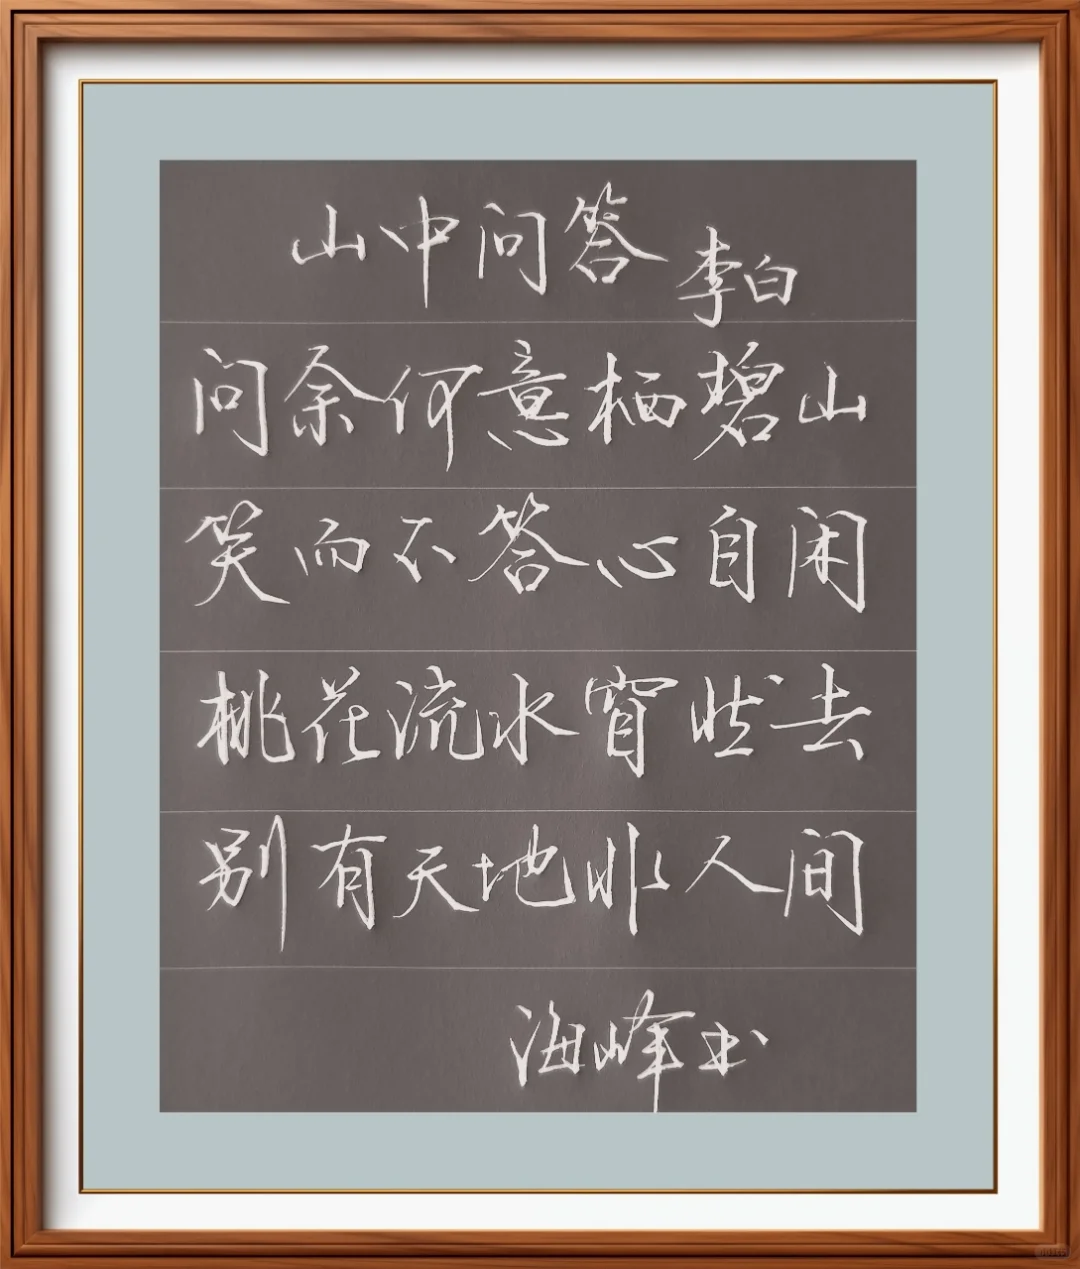 山中问答 李白
问余何意栖碧山
笑而不答心自闲
桃花流水窅然去
别有天地非人间
海峰书